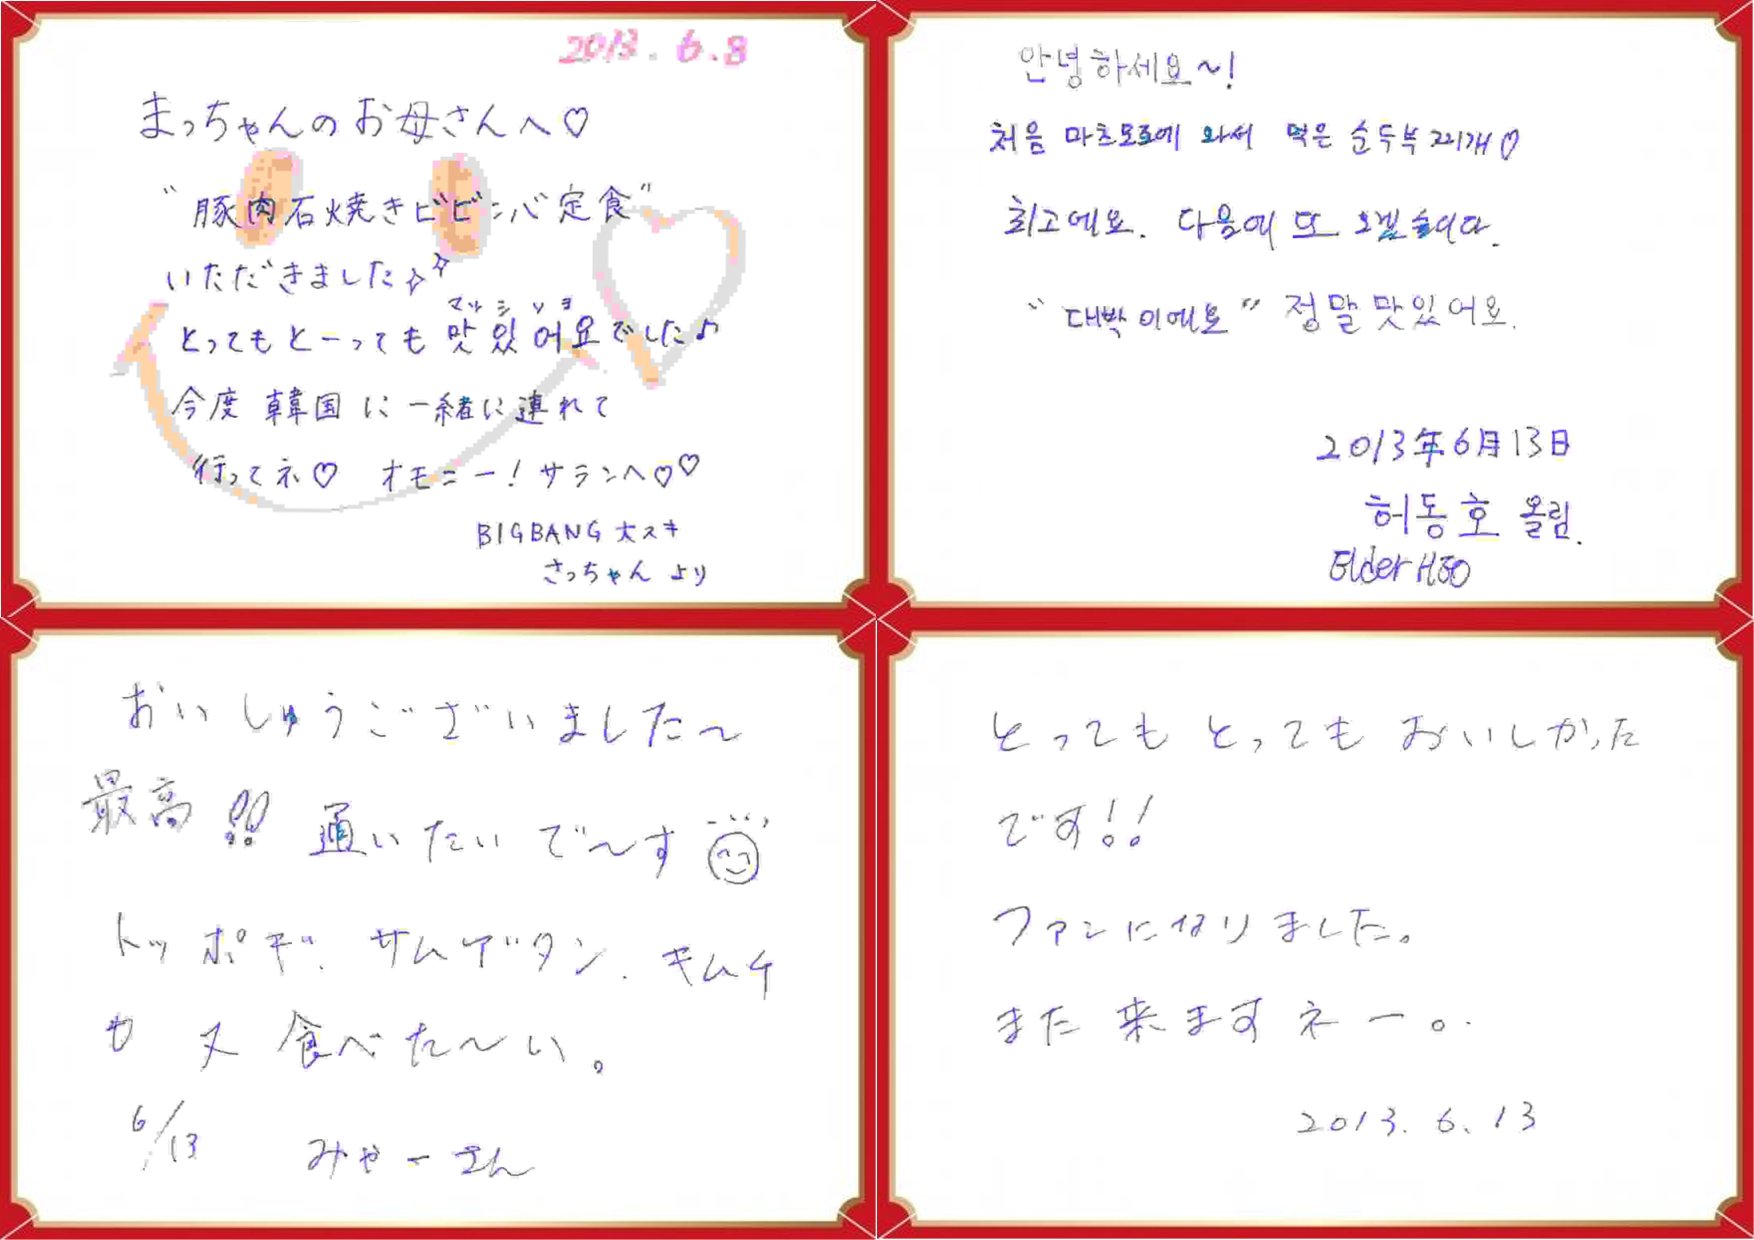 2013.6.8
まっちゃんのお母さんへ♡
"豚肉石焼きビビンバ定食"
いただきました☆☆
マッシソヨ
とってもとーっても맛있어요でした♪
今度 韓国に一緒に連れて
行ってネ♡ オモニー!サランヘ♡♡
BIGBANG 大スキ
さっちゃん より
안녕하세요~!
처음 마츠모토에 와서 먹은 순두부찌개♡
최고에요. 다음에 또 오겠습니다.
"대박이에요" 정말 맛있어요.
2013年6月13日
허동호 올림.
Elder HEO
おいしゅうございました〜
最高!! 通いたいで〜す
トッポギ、サムゲタン、キムチ
も 又 食べた〜い。
6/13 みやーさん
とってもとってもおいしかった
です!!
ファンになりました。
また来ますネー。
2013.6.13